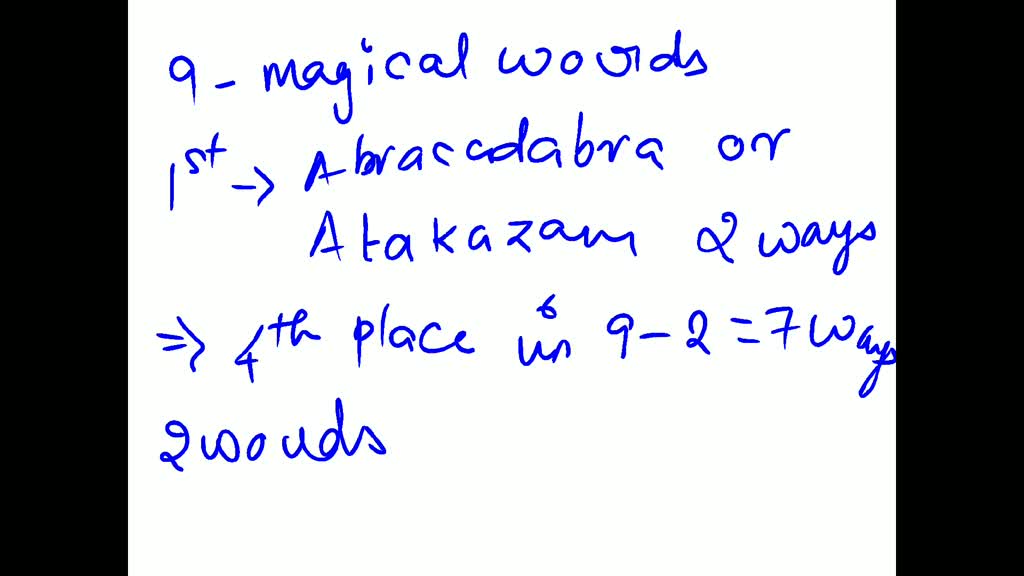 9 - magical words
1st → Abracadabra or
Atakazam 2 ways
⇒ 4th place in 9 - 2 = 7 ways
2 words